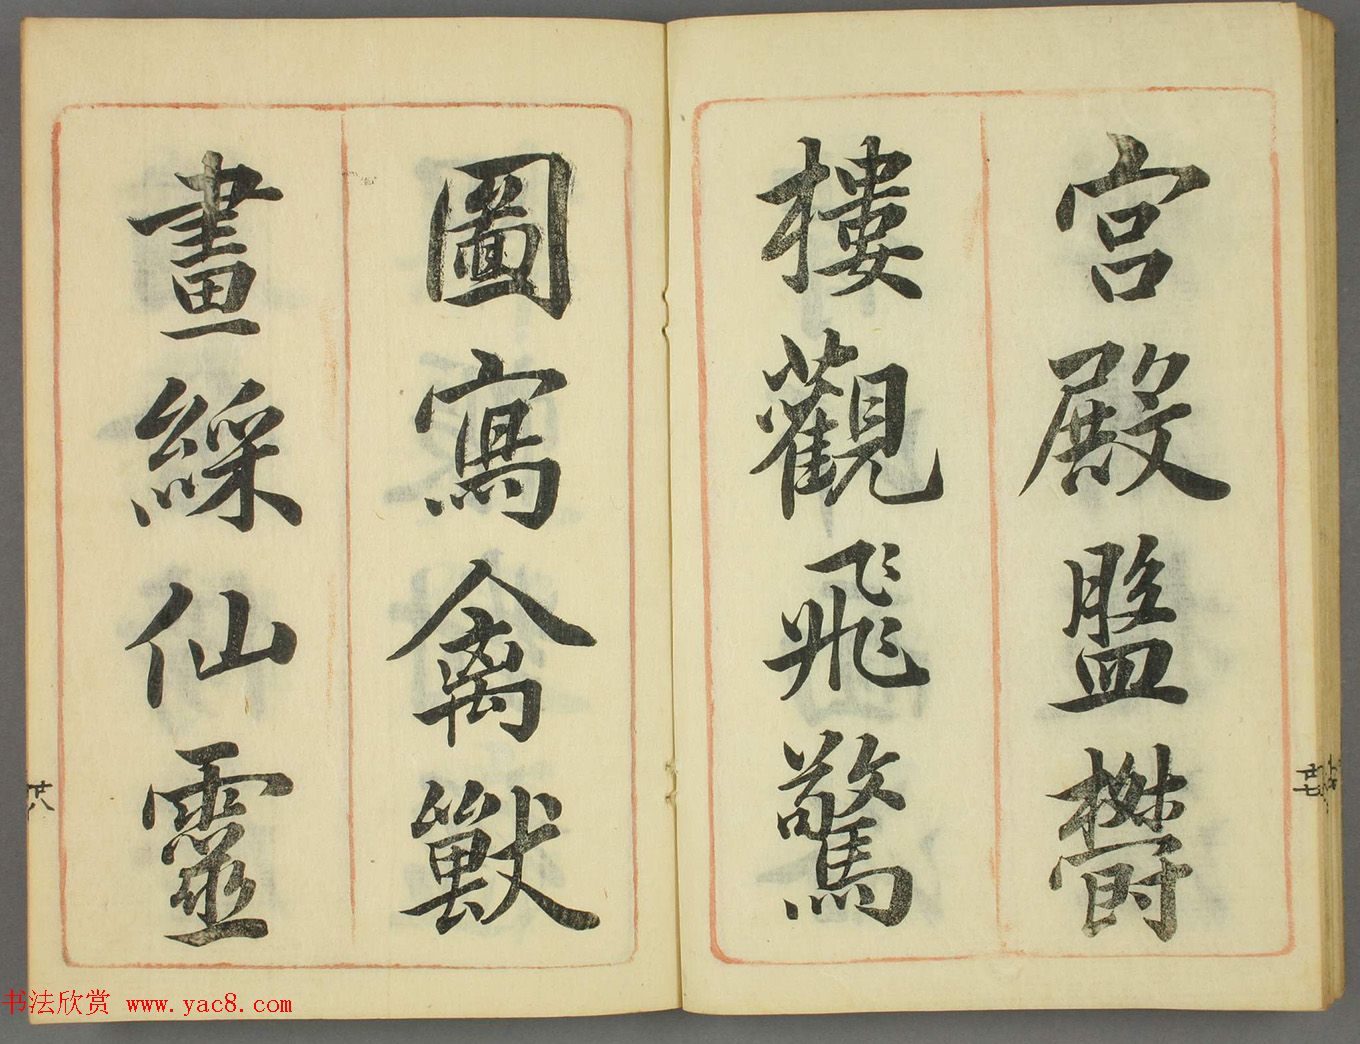 宮殿盤鬱
樓觀飛驚
圖寫禽獸
畫綵仙靈
廿七
廿八
书法欣赏 www.yac8.com